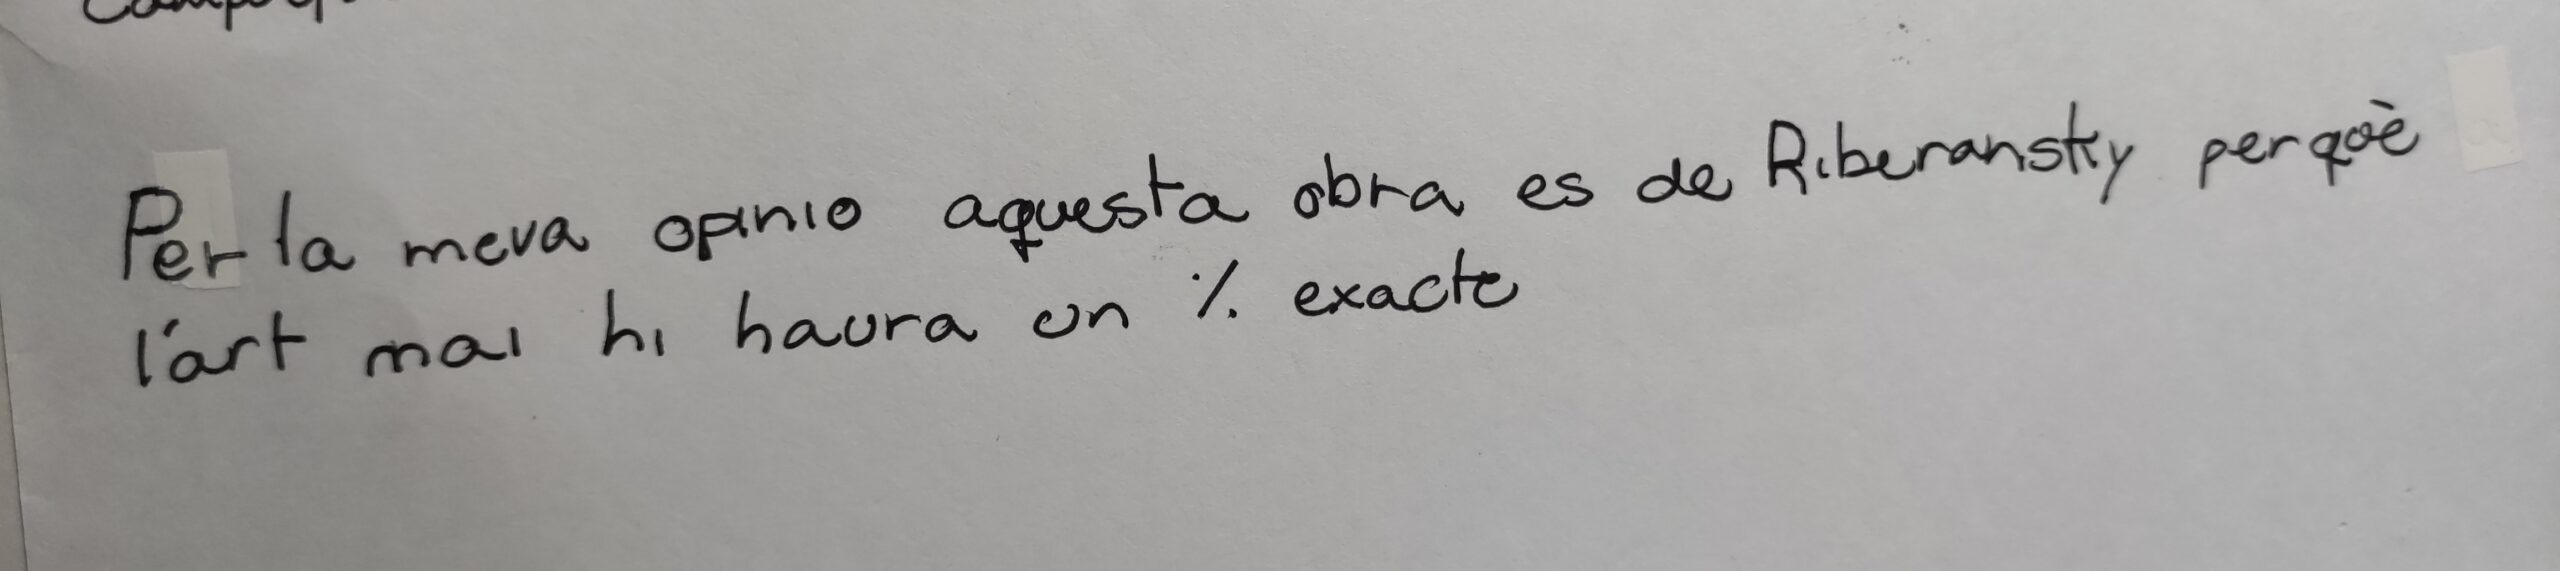 Per la meva opinio aquesta obra es de Riberansky perquè
l'art mai hi haura un % exacte